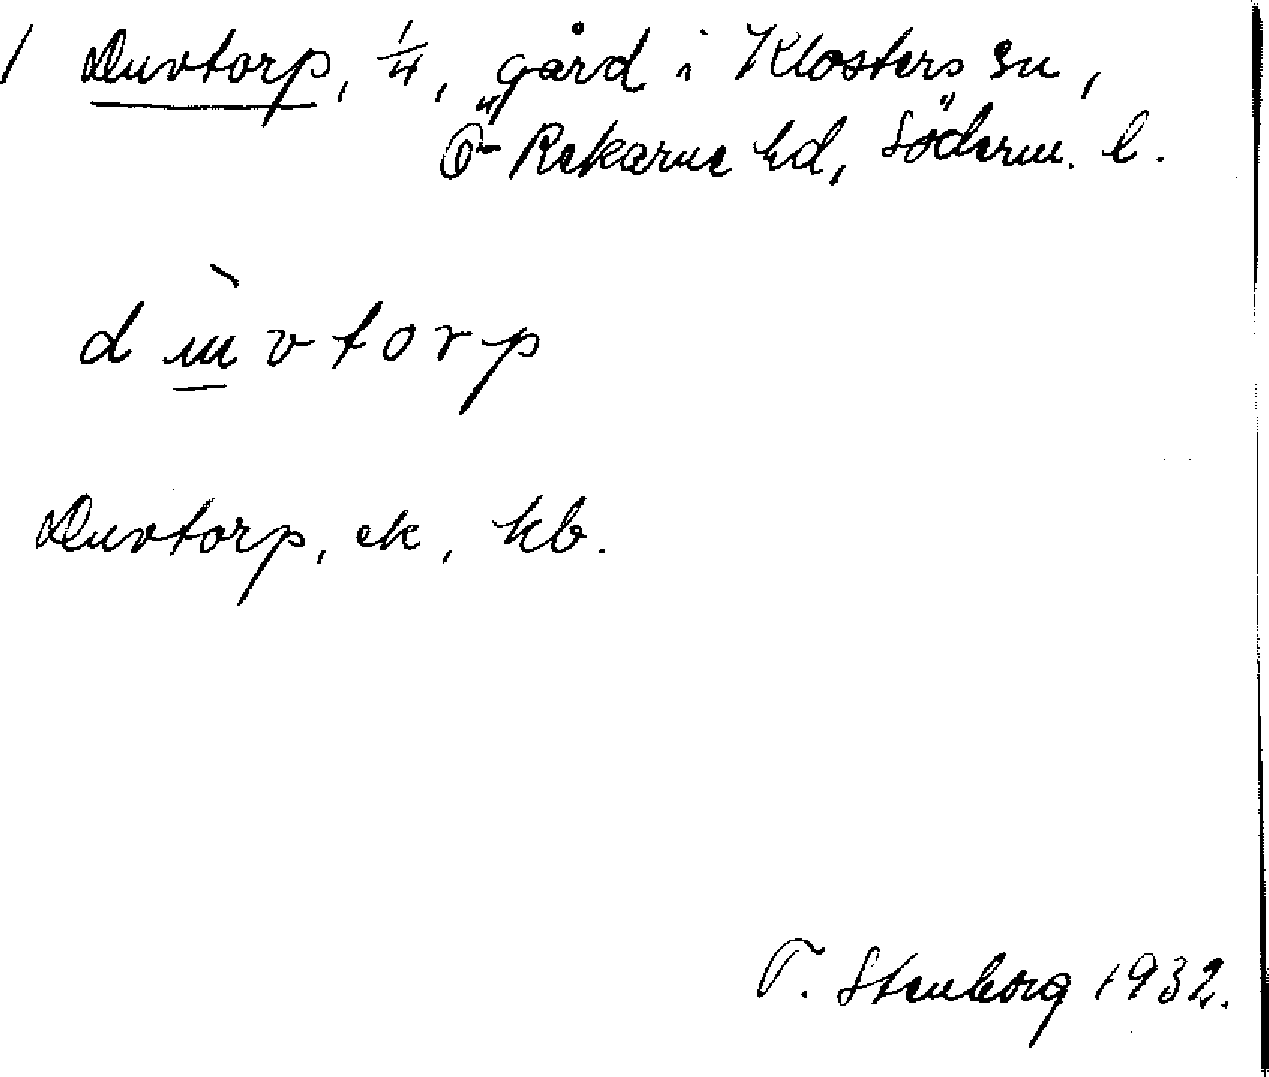 1 Duvtorp, 1/4, gård i Klosters sn,
Ö-Rekarne hd, Söderm. l.
d ɯ̀ v t o r p
Duvtorp, ek, kb.
T. Stenborg 1932.